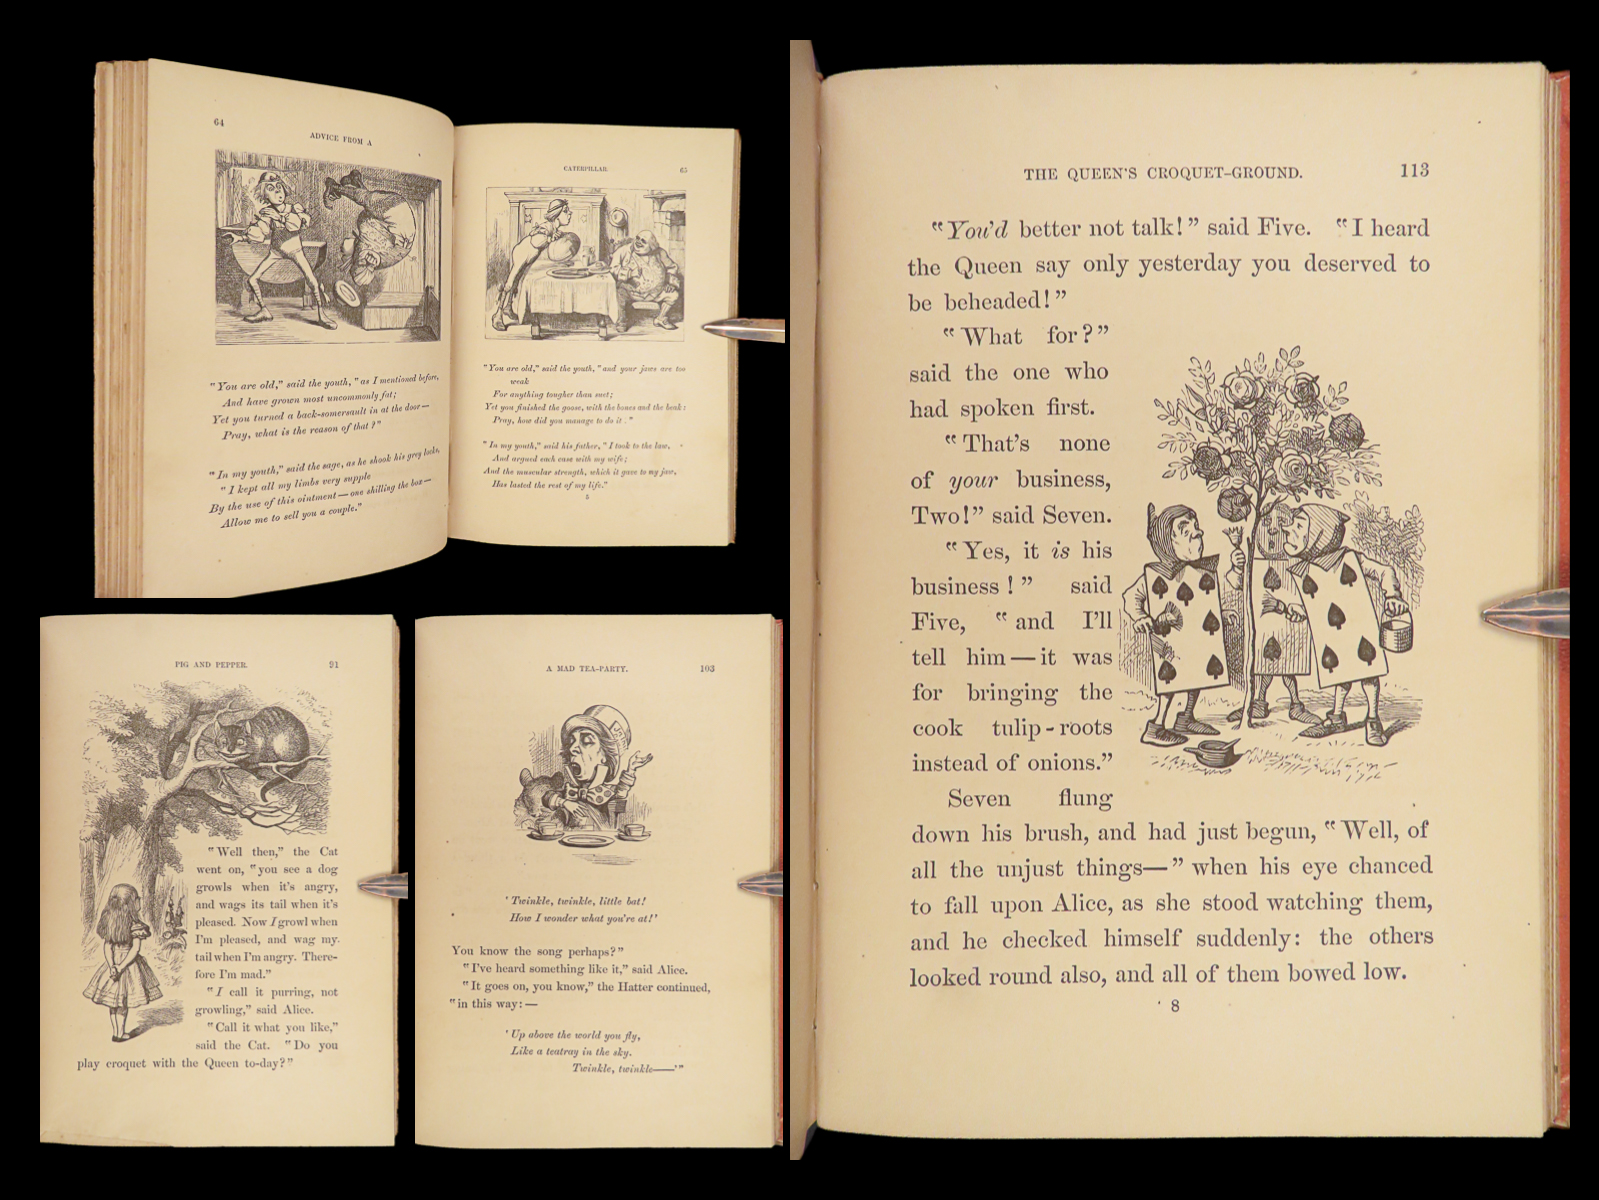 64
ADVICE FROM A
"You are old," said the youth, "as I mentioned before,
And have grown most uncommonly fat;
Yet you turned a back-somersault in at the door—
Pray, what is the reason of that?"
"In my youth," said the sage, as he shook his grey locks,
"I kept all my limbs very supple
By the use of this ointment—one shilling the box—
Allow me to sell you a couple."
CATERPILLAR.
65
"You are old," said the youth, "and your jaws are too
weak
For anything tougher than suet;
Yet you finished the goose, with the bones and the beak:
Pray, how did you manage to do it."
"In my youth," said his father, "I took to the law,
And argued each case with my wife;
And the muscular strength, which it gave to my jaw,
Has lasted the rest of my life."
5
PIG AND PEPPER.
91
"Well then," the Cat
went on, "you see a dog
growls when it's angry,
and wags its tail when it's
pleased. Now I growl when
I'm pleased, and wag my
tail when I'm angry. There-
fore I'm mad."
"I call it purring, not
growling," said Alice.
"Call it what you like,"
said the Cat. "Do you
play croquet with the Queen to-day?"
A MAD TEA-PARTY.
103
'Twinkle, twinkle, little bat!
How I wonder what you're at!'
You know the song perhaps?"
"I've heard something like it," said Alice.
"It goes on, you know," the Hatter continued,
"in this way:—
'Up above the world you fly,
Like a teatray in the sky.
Twinkle, twinkle——'"
THE QUEEN'S CROQUET-GROUND.
113
"You'd better not talk!" said Five. "I heard
the Queen say only yesterday you deserved to
be beheaded!"
"What for?"
said the one who
had spoken first.
"That's none
of your business,
Two!" said Seven.
"Yes, it is his
business!" said
Five, "and I'll
tell him—it was
for bringing the
cook tulip-roots
instead of onions."
Seven flung
down his brush, and had just begun, "Well, of
all the unjust things—" when his eye chanced
to fall upon Alice, as she stood watching them,
and he checked himself suddenly: the others
looked round also, and all of them bowed low.
8